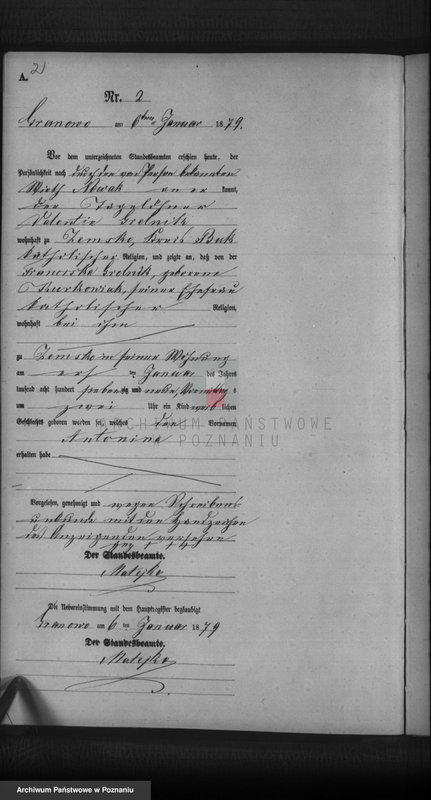 2)
A.
Nr. 2
Granowo am 6ten Januar 1879.
Vor dem unterzeichneten Standesbeamten erschien heute, der
Persönlichkeit nach durch den von Person bekannten
Wirth Nowak anerkannt,
der Tagelöhner
Valentin
wohnhaft zu Zemsko, Kreis Buk
katholischer Religion, und zeigte an, daß von der
Franciska geborene
seiner Ehefrau
katholischer Religion,
wohnhaft bei ihm
zu Zemsko in seiner Wohnung
am ersten Januar des Jahres
tausend acht hundert siebenzig und neun, Vormittag s
um zwei Uhr ein Kind weiblichen
Geschlechts geboren worden sei, welches den Vornamen
Antonina
erhalten habe
Vorgelesen, genehmigt und wegen Schreibens-
unkunde mit den Handzeichen
des Anzeigenden versehen
gez. + + +
Der Standesbeamte.
Matejka
Die Uebereinstimmung mit dem Hauptregister beglaubigt
Granowo am 6 ten Januar 1879
Der Standesbeamte.
Matejka
ARCHIWUM PAŃSTWOWE
W POZNANIU
Archiwum Państwowe w Poznaniu